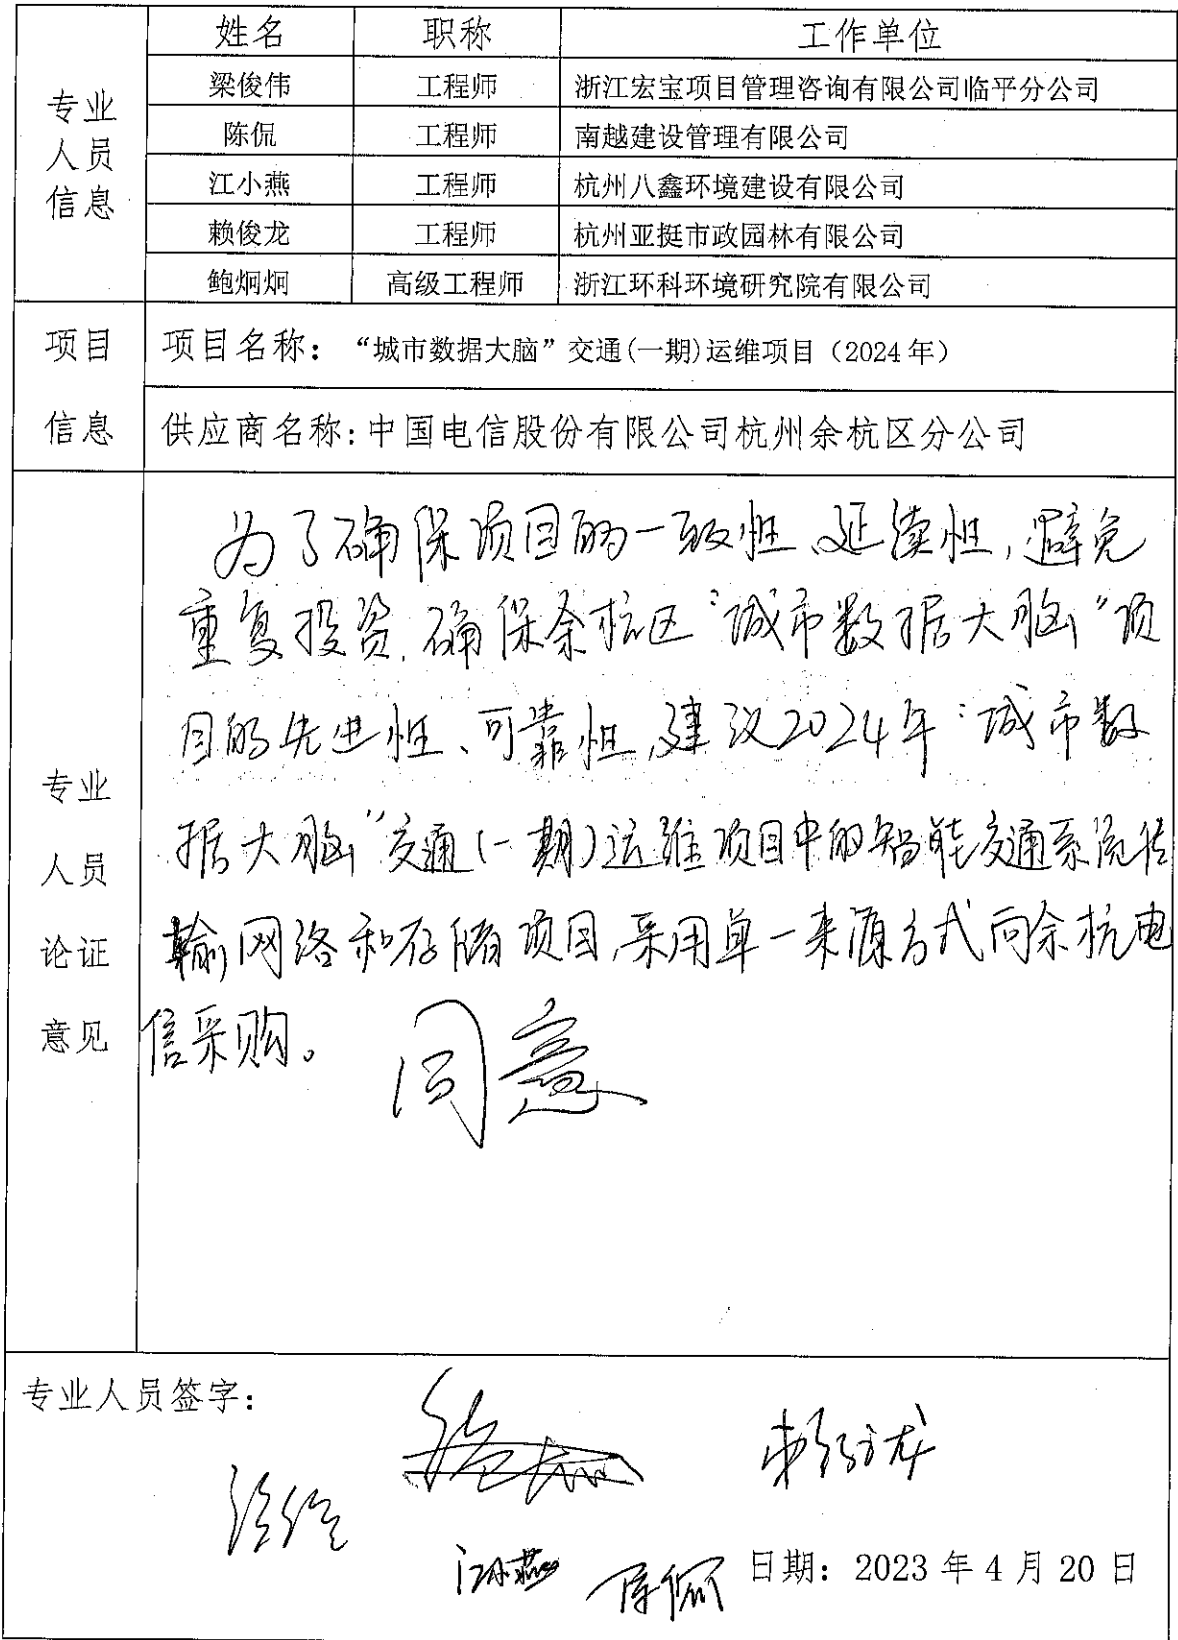 姓名 职称 工作单位
专业人员信息
梁俊伟 工程师 浙江宏宝项目管理咨询有限公司临平分公司
陈侃 工程师 南越建设管理有限公司
江小燕 工程师 杭州八鑫环境建设有限公司
赖俊龙 工程师 杭州亚挺市政园林有限公司
鲍炯炯 高级工程师 浙江环科环境研究院有限公司
项目 项目名称：“城市数据大脑”交通(一期)运维项目（2024年）
信息 供应商名称:中国电信股份有限公司杭州余杭区分公司
专业
人员
论证
意见
为了确保项目的一致性、延续性,避免
重复投资,确保余杭区“城市数据大脑”项
目的先进性、可靠性,建议2024年“城市数
据大脑”交通(一期)运维项目中的智能交通系统传
输网络和存储项目,采用单一来源方式向余杭电
信采购。
同意
专业人员签字：
赖俊龙
江小燕 陈侃
日期：2023年4月20日